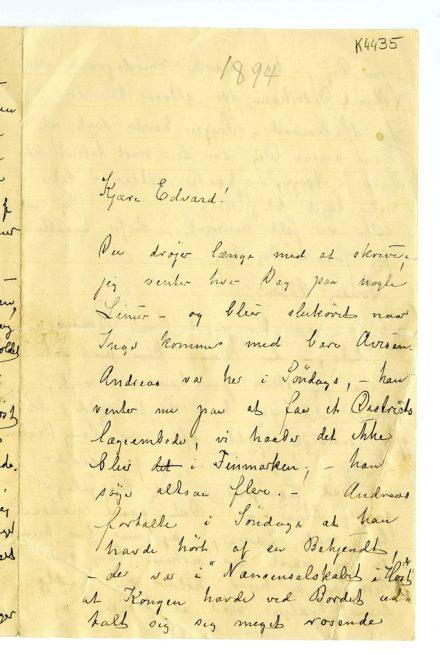 K4435
1894
Kjære Edvard!
Du drøjer længe med at skrive,
jeg venter hver Dag paa nogle
Linier – og bliver slukøret naar
Inger kommer med bare Avisen.
Andreas var her i Søndags, – han
venter nu paa at faa et Distrikts
lægeembede, vi haaber det ikke
bliv det i Finmarken, – han
søger altsaa flere. – Andreas
fortalte i Søndags at han
havde hørt af en Bekjendt,
– der var i "Nansenselskabet i Høst"
at Kongen havde ved Bordet ud
talt sig sig meget rosende